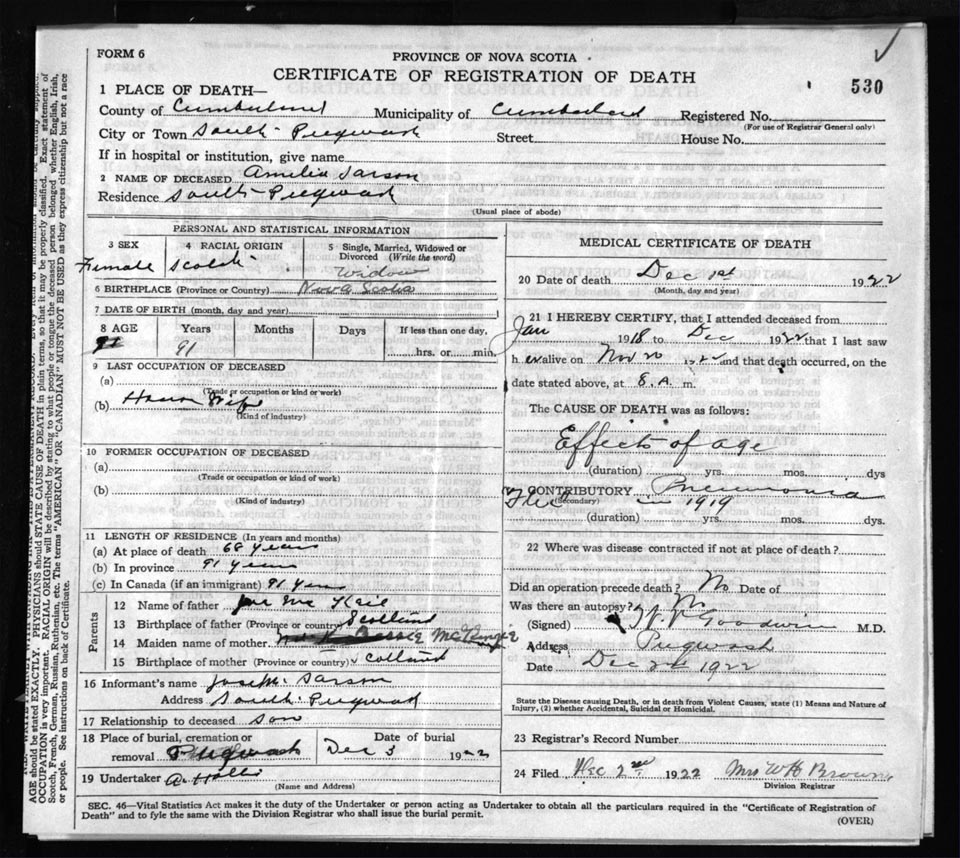 FORM 6
PROVINCE OF NOVA SCOTIA
CERTIFICATE OF REGISTRATION OF DEATH
530
1 PLACE OF DEATH—
County of Cumberland Municipality of Cumberland Registered No.
(For use of Registrar General only)
City or Town South Pugwash Street House No.
If in hospital or institution, give name
2 NAME OF DECEASED Amelia Sarson
Residence South Pugwash
(Usual place of abode)
PERSONAL AND STATISTICAL INFORMATION
3 SEX 4 RACIAL ORIGIN 5 Single, Married, Widowed or Divorced (Write the word)
Female Scotch Widow
6 BIRTHPLACE (Province or Country) Nova Scotia
7 DATE OF BIRTH (month, day and year)
8 AGE Years Months Days If less than one day,
91 91 hrs. or min.
9 LAST OCCUPATION OF DECEASED
(a)
(Trade or occupation or kind or work)
(b) House Wife
(Kind of industry)
10 FORMER OCCUPATION OF DECEASED
(a)
(Trade or occupation or kind of work)
(b)
(Kind of industry)
11 LENGTH OF RESIDENCE (In years and months)
(a) At place of death 68 years
(b) In province 91 years
(c) In Canada (if an immigrant) 91 years
Parents
12 Name of father
13 Birthplace of father (Province or country) Scotland
14 Maiden name of mother
15 Birthplace of mother (Province or country) Scotland
16 Informant's name Joseph Sarson
Address South Pugwash
17 Relationship to deceased son
18 Place of burial, cremation or Date of burial
removal Pugwash Dec 3 1922
19 Undertaker A. Hollis
(Name and Address)
MEDICAL CERTIFICATE OF DEATH
20 Date of death Dec 1st 1922
(Month, day and year)
21 I HEREBY CERTIFY, that I attended deceased from
Jan 1918 to Dec 1922 that I last saw
h er alive on Nov 20 1922 and that death occurred, on the
date stated above, at 8. A. m.
The CAUSE OF DEATH was as follows:
Effects of age
(duration) yrs. mos. dys
CONTRIBUTORY Pneumonia
(Secondary) in 1919
(duration) yrs. mos. dys.
22 Where was disease contracted if not at place of death?
Did an operation precede death? No Date of
Was there an autopsy? No
(Signed) Goodwin M.D.
Address Pugwash
Date Dec 2nd 1922
State the Disease causing Death, or in death from Violent Causes, state (1) Means and Nature of
Injury, (2) whether Accidental, Suicidal or Homicidal.
23 Registrar's Record Number
24 Filed Dec 2nd 1922 Mrs W H Brown
Division Registrar
SEC. 46—Vital Statistics Act makes it the duty of the Undertaker or person acting as Undertaker to obtain all the particulars required in the "Certificate of Registration of
Death" and to fyle the same with the Division Registrar who shall issue the burial permit.
(OVER)
AGE should be stated EXACTLY. PHYSICIANS should STATE CAUSE OF DEATH in plain terms, so that it may be properly classified. Exact statement of
OCCUPATION is very important. RACIAL ORIGIN will be described by stating to what people or tongue the deceased person belonged whether English, Irish,
Scotch, French, German, Russian, Ruthenian, etc. The terms "AMERICAN" OR "CANADIAN" MUST NOT BE USED as they express citizenship but not a race
or people. See instructions on back of Certificate.